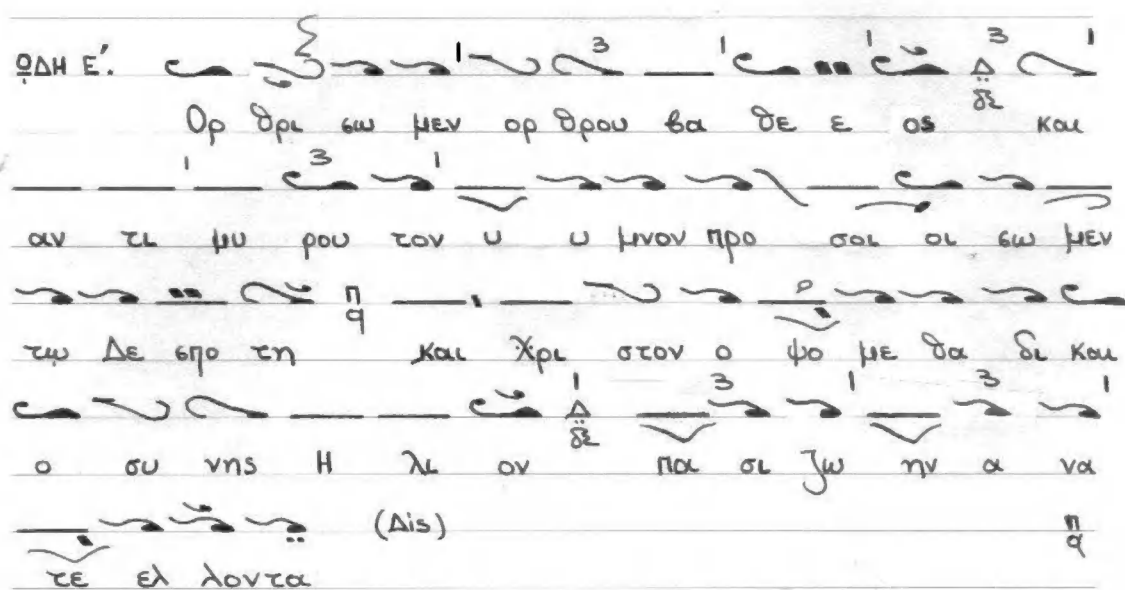 ΩΔΗ Ε΄. 1 3 1 1 3 1
Δ
δι
Ορ θρι σω μεν ορ θρου βα θε ε ος και
1 3 1
αν τι μυ ρου τον υ υ μνον προ σοι οι σω μεν
π
q
τω Δε σπο τη και Χρι στον ο ψο με θα δι και
1 3 1 3 1
Δ
δι
ο συ νης Η λι ον πα σι ζω ην α να
(Δis)
π
q
τε ελ λον τα